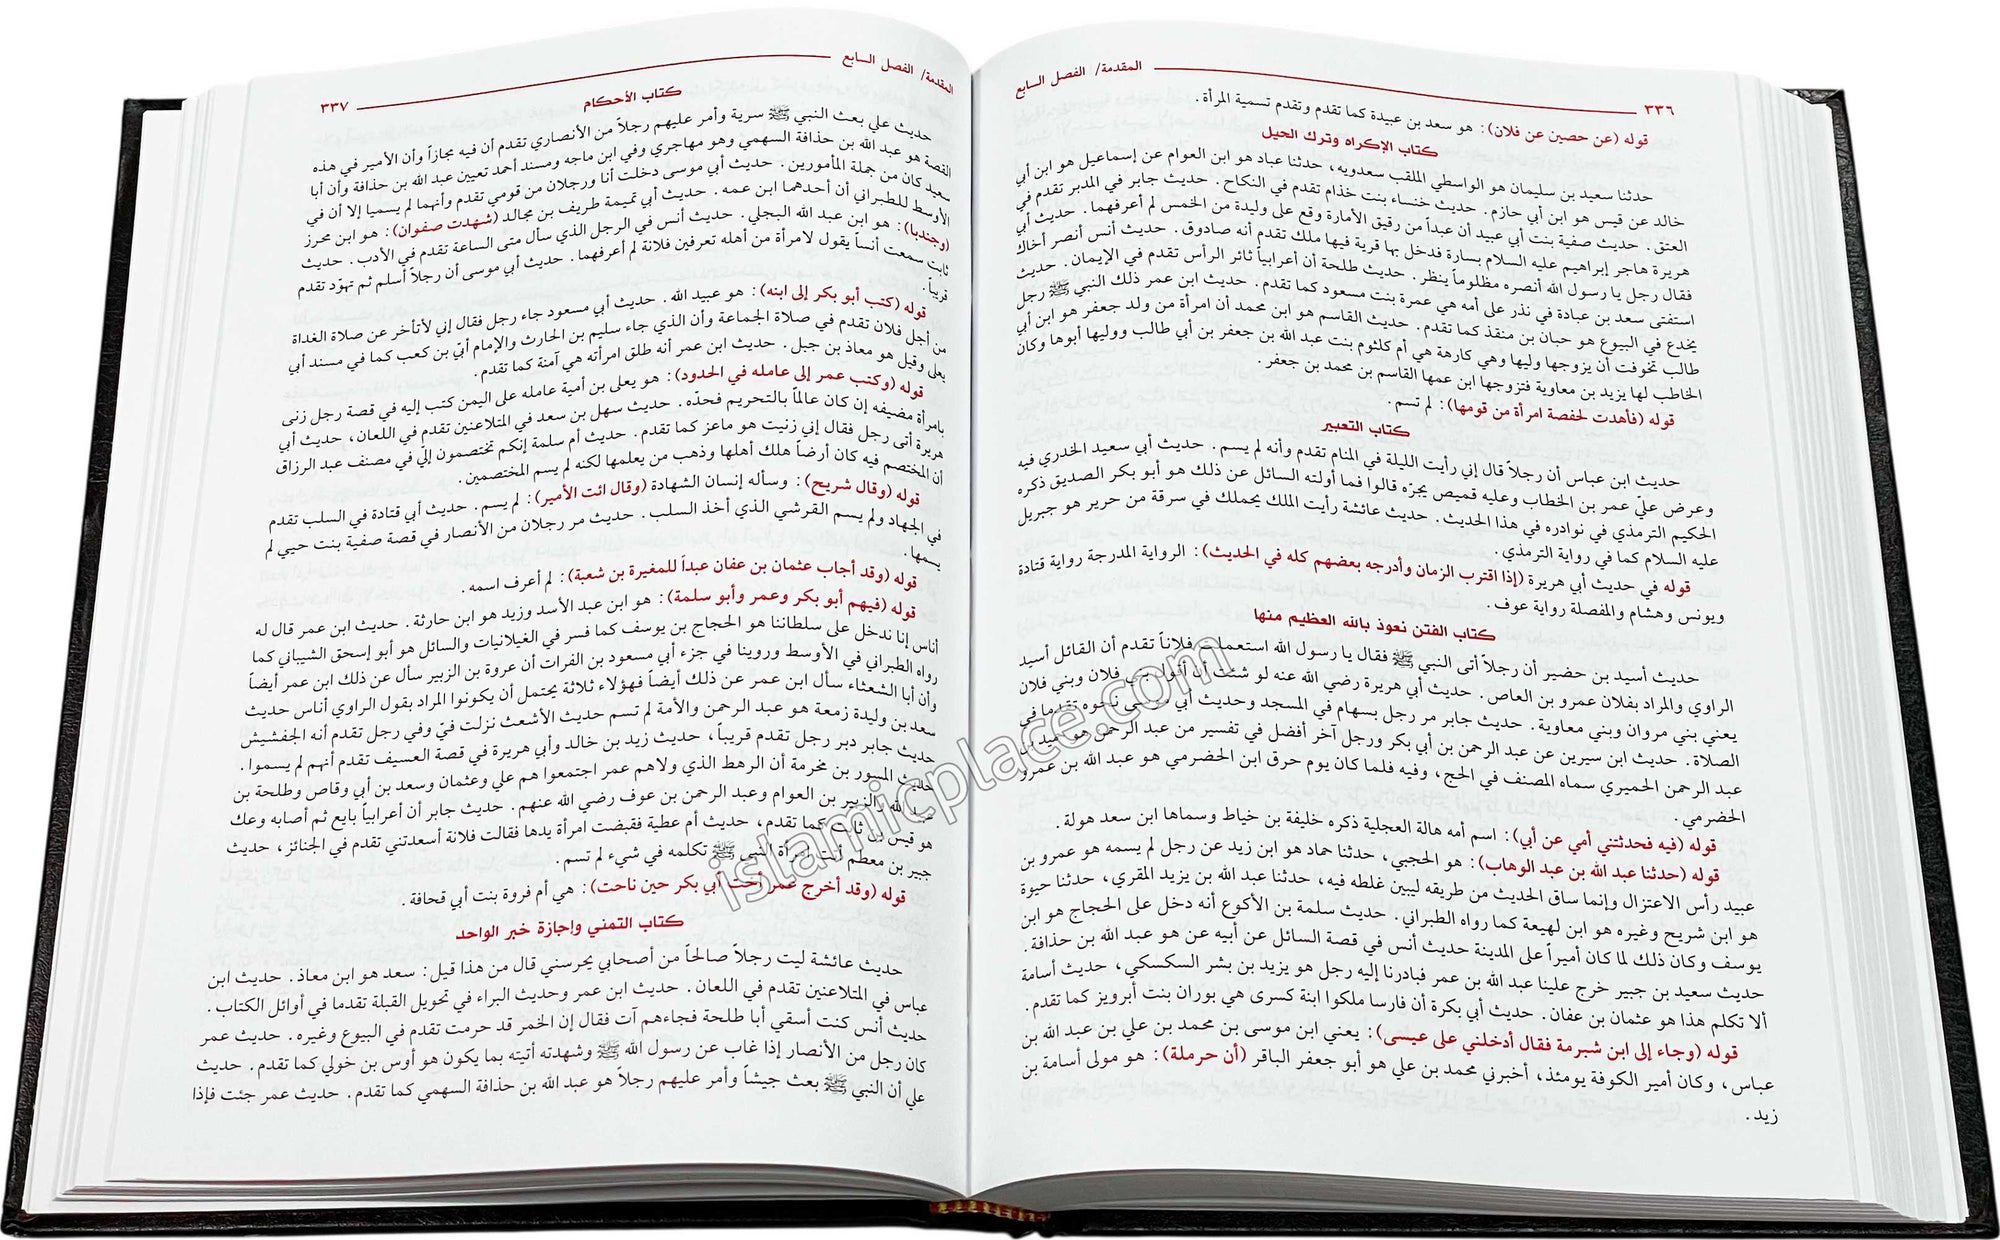 ٣٣٦ المقدمة/ الفصل السابع
قوله (عن حصين عن فلان): هو سعد بن عبيدة كما تقدم وتقدم تسمية المرأة.
كتاب الإكراه وترك الحيل
حدثنا سعيد بن سليمان هو الواسطي الملقب سعدويه، حدثنا عباد هو ابن العوام عن إسماعيل هو ابن أبي
خالد عن قيس هو ابن أبي حازم. حديث خنساء بنت خذام تقدم في النكاح. حديث جابر في المدبر تقدم في
العتق. حديث صفية بنت أبي عبيد أن عبداً من رقيق الأمارة وقع على وليدة من الخمس لم أعرفهما. حديث أبي
هريرة هاجر إبراهيم عليه السلام بسارة فدخل بها قرية فيها ملك تقدم أنه صادوق. حديث أنس أنصر أخاك
فقال رجل يا رسول الله أنصره مظلوماً ينظر. حديث طلحة أن أعرابياً ثائر الرأس تقدم في الإيمان. حديث
استفتى سعد بن عبادة في نذر على أمه هي عمرة بنت مسعود كما تقدم. حديث ابن عمر ذلك النبي ﷺ رجل
يخدع في البيوع هو حبان بن منقذ كما تقدم. حديث القاسم هو ابن محمد أن امرأة من ولد جعفر هو ابن أبي
طالب تخوفت أن يزوجها وليها وهي كارهة هي أم كلثوم بنت عبد الله بن جعفر بن أبي طالب ووليها أبوها وكان
الخاطب لها يزيد بن معاوية فتزوجها ابن عمها القاسم بن محمد بن جعفر.
قوله (فأهدت لحفصة امرأة من قومها): لم تسم.
كتاب التعبير
حديث ابن عباس أن رجلاً قال إني رأيت الليلة في المنام تقدم وأنه لم يسم. حديث أبي سعيد الخدري فيه
وعرض عليّ عمر بن الخطاب وعليه قميص يجرّه قالوا فما أولته السائل عن ذلك هو أبو بكر الصديق ذكره
الحكيم الترمذي في نوادره في هذا الحديث. حديث عائشة رأيت الملك يحملك في سرقة من حرير هو جبريل
عليه السلام كما في رواية الترمذي.
قوله في حديث أبي هريرة (إذا اقترب الزمان وأدرجه بعضهم كله في الحديث): الرواية المدرجة رواية قتادة
ويونس وهشام والمفصلة رواية عوف.
كتاب الفتن نعوذ بالله العظيم منها
حديث أسيد بن حضير أن رجلاً أتى النبي ﷺ فقال يا رسول الله استعملت فلاناً تقدم أن القائل أسيد
الراوي والمراد بفلان عمرو بن العاص. حديث أبي هريرة رضي الله عنه لو شئت أن أقول بني فلان وبني فلان
يعني بني مروان وبني معاوية. حديث جابر مر رجل بسهام في المسجد وحديث أبي موسى نحوه تقدما في
الصلاة. حديث ابن سيرين عن عبد الرحمن بن أبي بكر ورجل آخر أفضل في تفسير من عبد الرحمن هو حميد بن
عبد الرحمن الحميري سماه المصنف في الحج، وفيه فلما كان يوم حرق ابن الحضرمي هو عبد الله بن عمرو
الحضرمي.
قوله (فيه فحدثتني أمي عن أبي): اسم أمه هالة العجلية ذكره خليفة بن خياط وسماها ابن سعد هولة.
قوله (حدثنا عبد الله بن عبد الوهاب): هو الحجبي، حدثنا حماد هو ابن زيد عن رجل لم يسمه هو عمرو بن
عبيد رأس الاعتزال وإنما ساق الحديث من طريقه ليبين غلطه فيه، حدثنا عبد الله بن يزيد المقري، حدثنا حيوة
هو ابن شريح وغيره هو ابن لهيعة كما رواه الطبراني. حديث سلمة بن الأكوع أنه دخل على الحجاج هو ابن
يوسف وكان ذلك لما كان أميراً على المدينة حديث أنس في قصة السائل عن أبيه عن هو عبد الله بن حذافة.
حديث سعيد بن جبير خرج علينا عبد الله بن عمر فبادرنا إليه رجل هو يزيد بن بشر السكسكي، حديث أسامة
ألا تكلم هذا هو عثمان بن عفان. حديث أبي بكرة أن فارسا ملكوا ابنة كسرى هي بوران بنت أبرويز كما تقدم.
قوله (وجاء إلى ابن شبرمة فقال أدخلني على عيسى): يعني ابن موسى بن محمد بن علي بن عبد الله بن
عباس، وكان أمير الكوفة يومئذ، أخبرني محمد بن علي هو أبو جعفر الباقر (أن حرملة): هو مولى أسامة بن
زيد.
المقدمة/ الفصل السابع ٣٣٧
كتاب الأحكام
حديث علي بعث النبي ﷺ سرية وأمر عليهم رجلاً من الأنصاري تقدم أن فيه مجازاً وأن الأمير في هذه
القصة هو عبد الله بن حذافة السهمي وهو مهاجري وفي ابن ماجه ومسند أحمد تعيين عبد الله بن حذافة وأن أبا
سعيد كان من جملة المأمورين. حديث أبي موسى دخلت أنا ورجلان من قومي تقدم وأنهما لم يسميا إلا أن في
الأوسط للطبراني أن أحدهما ابن عمه. حديث أبي تميمة طريف بن مجالد (شهدت صفوان): هو ابن محرز
(وجندبا): هو ابن عبد الله البجلي. حديث أنس في الرجل الذي سأل متى الساعة تقدم في الأدب. حديث
ثابت سمعت أنساً يقول لامرأة من أهله تعرفين فلانة لم أعرفهما. حديث أبي موسى أن رجلاً أسلم ثم تهوّد تقدم
قريباً.
قوله (كتب أبو بكر إلى ابنه): هو عبيد الله. حديث أبي مسعود جاء رجل فقال إني لأتأخر عن صلاة الغداة
من أجل فلان تقدم في صلاة الجماعة وأن الذي جاء سليم بن الحارث والإمام أبيّ بن كعب كما في مسند أبي
يعلى وقيل هو معاذ بن جبل. حديث ابن عمر أنه طلق امرأته هي آمنة كما تقدم.
قوله (وكتب عمر إلى عامله في الحدود): هو يعلى بن أمية عامله على اليمن كتب إليه في قصة رجل زنى
بامرأة مضيفه إن كان عالماً بالتحريم فحدّه. حديث سهل بن سعد في المتلاعنين تقدم في اللعان، حديث أبي
هريرة أتى رجل فقال إني زنيت هو ماعز كما تقدم. حديث أم سلمة إنكم تختصمون إليّ في مصنف عبد الرزاق
أن المختصم فيه كان أرضاً هلك أهلها وذهب من يعلمها لكنه لم يسم المختصمين.
قوله (وقال شريح): وسأله إنسان الشهادة (وقال ائت الأمير): لم يسم. حديث أبي قتادة في السلب تقدم
في الجهاد ولم يسم القرشي الذي أخذ السلب. حديث مر رجلان من الأنصار في قصة صفية بنت حيي لم
يسمها.
قوله (وقد أجاب عثمان بن عفان عبداً للمغيرة بن شعبة): لم أعرف اسمه.
قوله (فيهم أبو بكر وعمر وأبو سلمة): هو ابن عبد الأسد وزيد هو ابن حارثة. حديث ابن عمر قال له
أناس إنا ندخل على سلطاننا هو الحجاج بن يوسف كما فسر في الغيلانيات والسائل هو أبو إسحق الشيباني كما
رواه الطبراني في الأوسط وروينا في جزء أبي مسعود بن الفرات أن عروة بن الزبير سأل عن ذلك ابن عمر أيضاً
وأن أبا الشعثاء سأل ابن عمر عن ذلك أيضاً فهؤلاء ثلاثة يحتمل أن يكونوا المراد بقول الراوي أناس حديث
سعد بن وليدة زمعة هو عبد الرحمن والأمة لم تسم حديث الأشعث نزلت فيّ وفي رجل تقدم أنه الجفشيش
حديث جابر دبر رجل تقدم قريباً، حديث زيد بن خالد وأبي هريرة في قصة العسيف تقدم أنهم لم يسموا.
حديث المسور بن مخرمة أن الرهط الذي ولاهم عمر اجتمعوا هم علي وعثمان وسعد بن أبي وقاص وطلحة بن
عبيد الله والزبير بن العوام وعبد الرحمن بن عوف رضي الله عنهم. حديث جابر أن أعرابياً بايع ثم أصابه وعك
هو قيس بن ثابت كما تقدم، حديث أم عطية فقبضت امرأة يدها فقالت فلانة أسعدتني تقدم في الجنائز، حديث
جبير بن معطم أتت امرأة النبي ﷺ تكلمه في شيء لم تسم.
قوله (وقد أخرج عمر أخت أبي بكر حين ناحت): هي أم فروة بنت أبي قحافة.
كتاب التمني وإجازة خبر الواحد
حديث عائشة ليت رجلاً صالحاً من أصحابي يحرسني قال من هذا قيل: سعد هو ابن معاذ. حديث ابن
عباس في المتلاعنين تقدم في اللعان. حديث ابن عمر وحديث البراء في تحويل القبلة تقدما في أوائل الكتاب.
حديث أنس كنت أسقي أبا طلحة فجاءهم آت فقال إن الخمر قد حرمت تقدم في البيوع وغيره. حديث عمر
كان رجل من الأنصار إذا غاب عن رسول الله ﷺ وشهدته أتيته بما يكون هو أوس بن خولي كما تقدم. حديث
علي أن النبي ﷺ بعث جيشاً وأمر عليهم رجلاً هو عبد الله بن حذافة السهمي كما تقدم. حديث عمر جئت فإذا
islamicplace.com